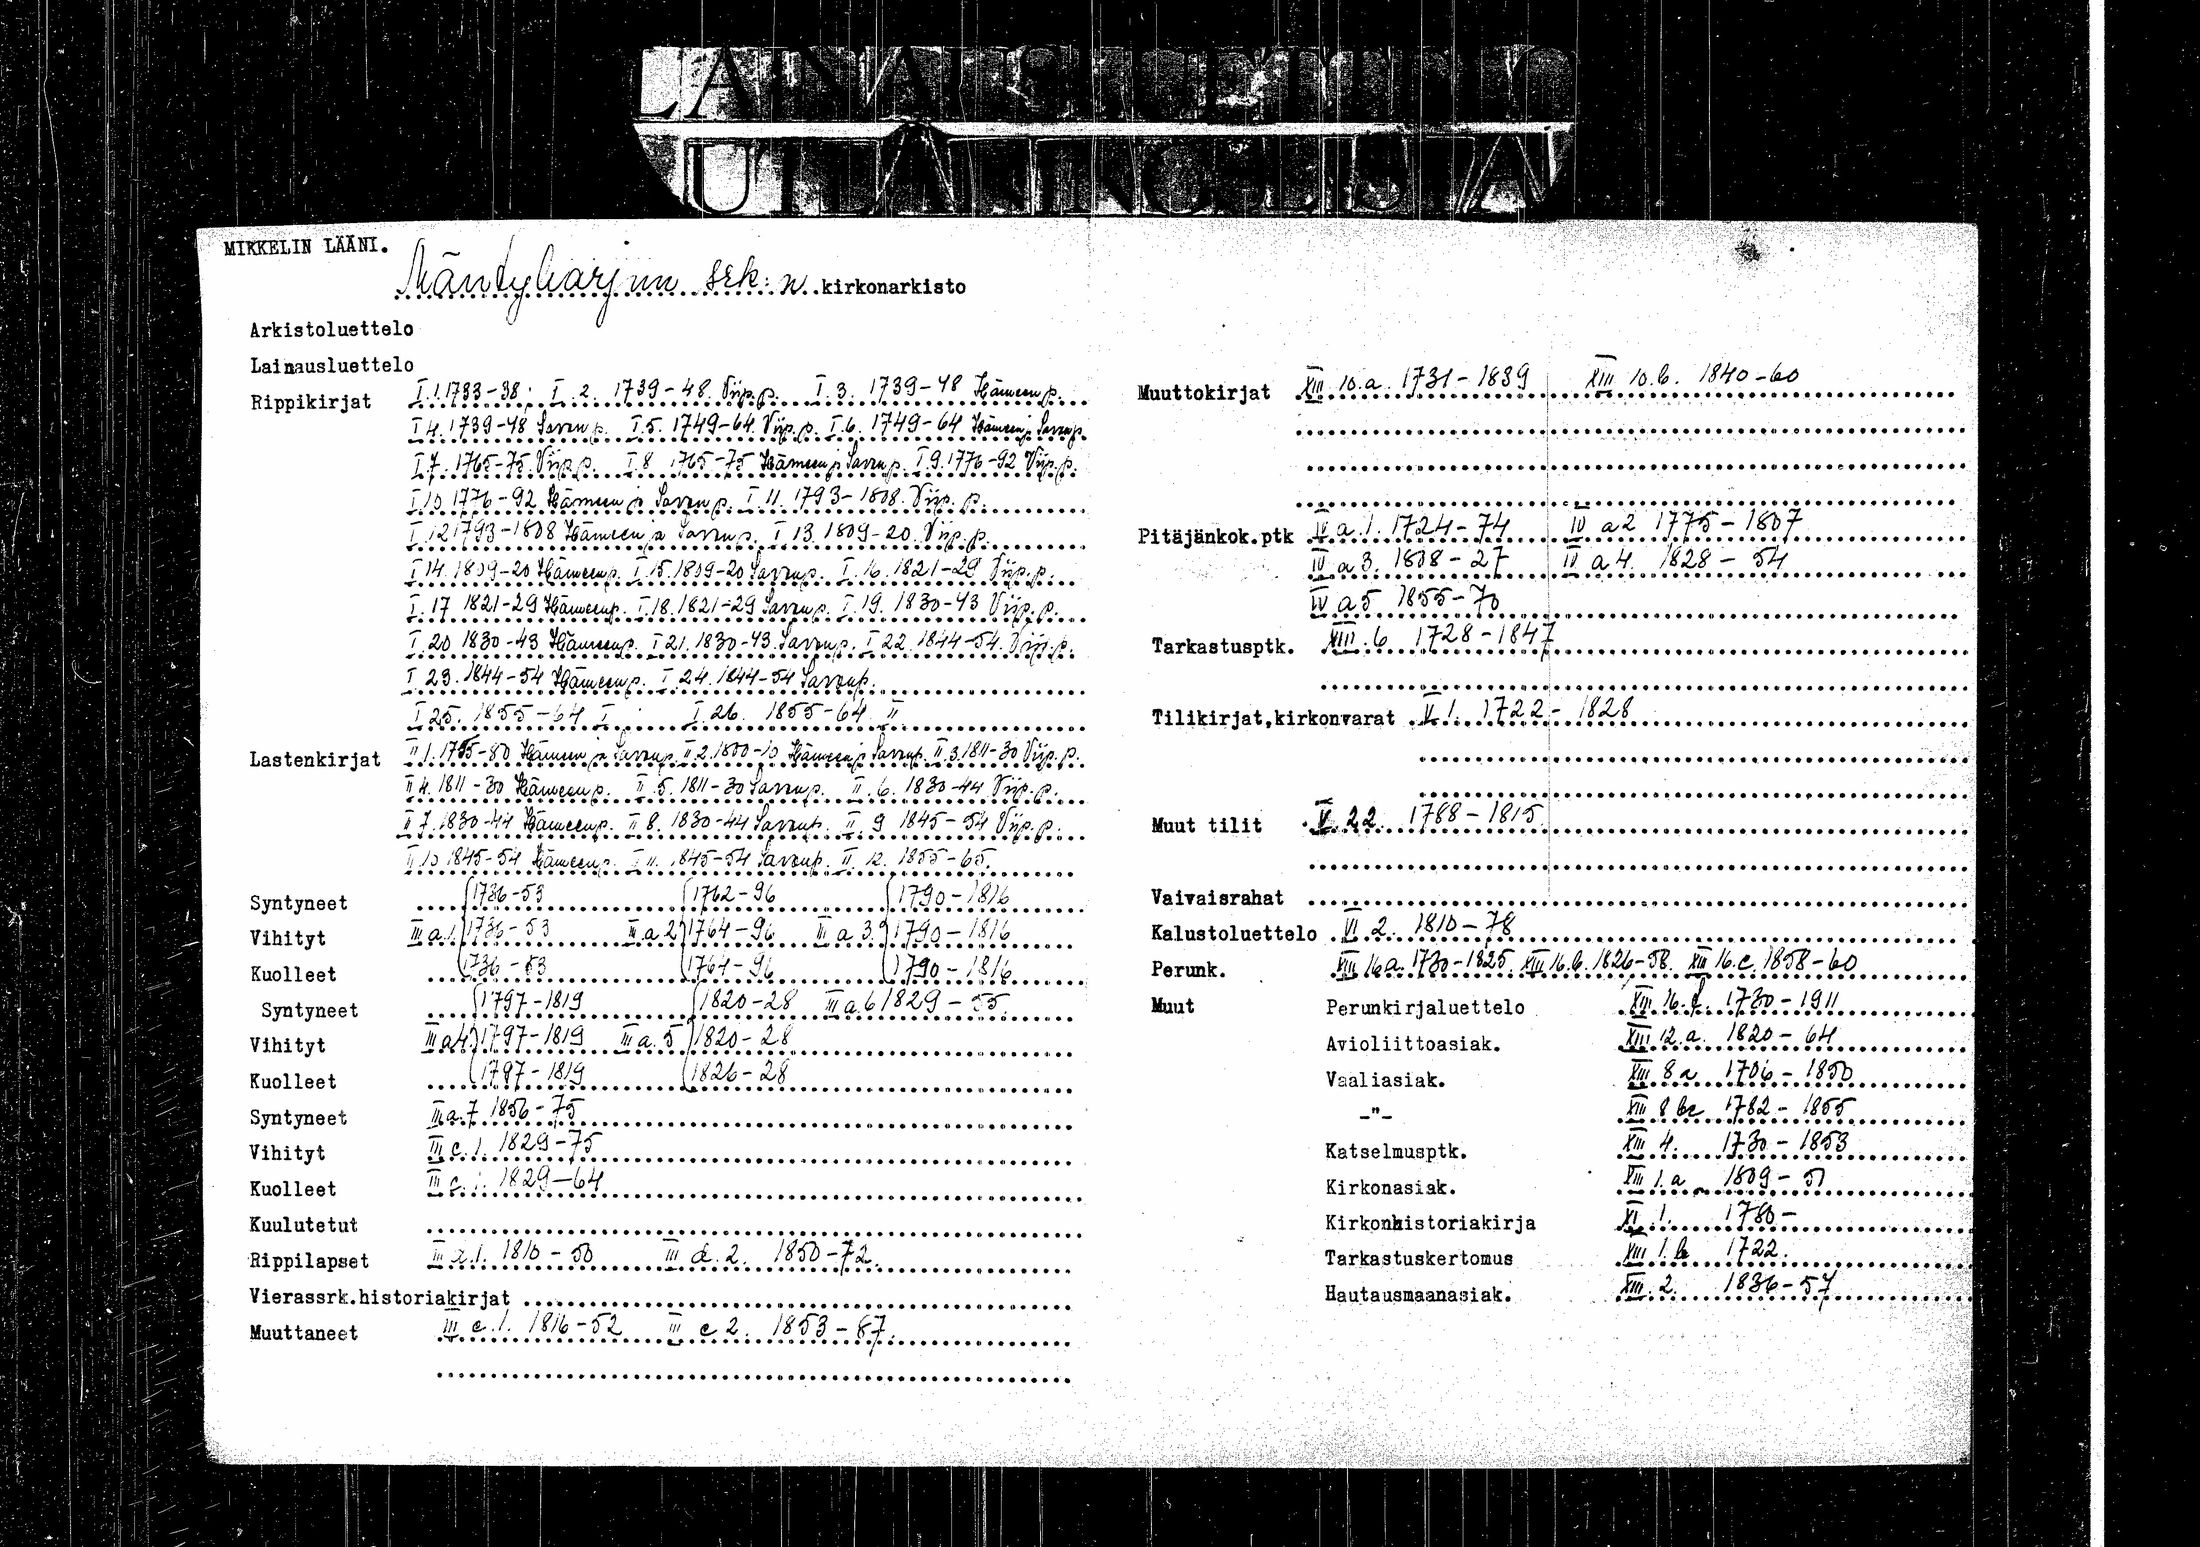 MIKKELIN LÄÄNI.
Mäntyharjun srk:n kirkonarkisto
Arkistoluettelo
Lainausluettelo
Rippikirjat I.1.1733-38; I.2. 1739-48. Viip.p. I.3. 1739-48 Hämeen p.
I 4. 1739-48 Savon p. I.5. 1749-64. Viip.p. I.6. 1749-64 Hämeen ja Savon p.
I 7. 1765-75. Viip.p. I.8 1765-75 Hämeen ja Savon p. I.9. 1776-92 Viip.p.
I 10 1776-92 Hämeen ja Savon p. I 11. 1793-1808. Viip. p.
I 12 1793-1808 Hämeen ja Savon p. I 13. 1809-20. Viip.p.
I 14. 1809-20 Hämeen p. I.15. 1809-20 Savon p. I.16. 1821-29 Viip.p.
I.17 1821-29 Hämeen p. I.18. 1821-29 Savon p. I.19. 1830-43 Viip.p.
I.20 1830-43 Hämeen p. I 21. 1830-43. Savon p. I 22 1844-54. Viip.p.
I 23. 1844-54 Hämeen p. I 24. 1844-54 Savon p.
I 25. 1855-64 I I.26. 1855-64 II
Lastenkirjat II 1. -80 Hämeen ja Savon p. II 2. 1800-10 Hämeen ja Savon p. II 3. 1811-30 Viip.p.
II 4. 1811-30 Hämeen p. II.5. 1811-30 Savon p. II.6. 1830-44 Viip.p.
II 7. 1830-44 Hämeen p. II 8. 1830-44 Savon p. II.9 1845-54 Viip.p.
II 10 1845-54 Hämeen p. II 11. 1845-54 Savon p. II.12. 1855-65.
Syntyneet 1736-53 1762-96 1790-1816
Vihityt III a.1. 1736-53 III a 2 1764-96 III a 3. 1790-1816
Kuolleet 1736-53 1764-96 1790-1816
Syntyneet 1797-1819 1820-28 III a.6 1829-55
Vihityt III a 4. 1797-1819 III a.5 1820-28
Kuolleet 1797-1819 1826-28
Syntyneet III a.7 1856-75
Vihityt III c.1. 1829-75
Kuolleet III c.1. 1829-64
Kuulutetut
Rippilapset III d.1. 1810-50 III d.2. 1850-72.
Vierassrk.historiakirjat
Muuttaneet III e.1. 1816-52 III e 2. 1853-87.
Muuttokirjat XIII 10.a. 1731-1839 XIII 10.b. 1840-60
Pitäjänkok.ptk IV a.1. 1724-74 IV a 2 1775-1807
IV a 3. 1808-27 IV a 4. 1828-54
IV a 5 1855-70
Tarkastusptk. XIII.6. 1728-1847
Tilikirjat,kirkonvarat V 1. 1722-1828
Muut tilit V.22. 1788-1815
Vaivaisrahat
Kalustoluettelo VI 2. 1810-78
Perunk. XIII 16 a. 1730-1825 XIII 16.b. 1826-58. XIII 16.c. 1858-60
Muut Perunkirjaluettelo XIII 16. 1730-1911
Avioliittoasiak. XIII 12.a. 1820-64
Vaaliasiak. XIII 8 a 1706-1850
-"- XIII 8 1782-1855
Katselmusptk. XIII 4. 1730-1853
Kirkonasiak. XIII 1.a 1809-51
Kirkonhistoriakirja XI 1. 1780-
Tarkastuskertomus XIII 1.b 1722.
Hautausmaanasiak. XIII.2. 1836-57